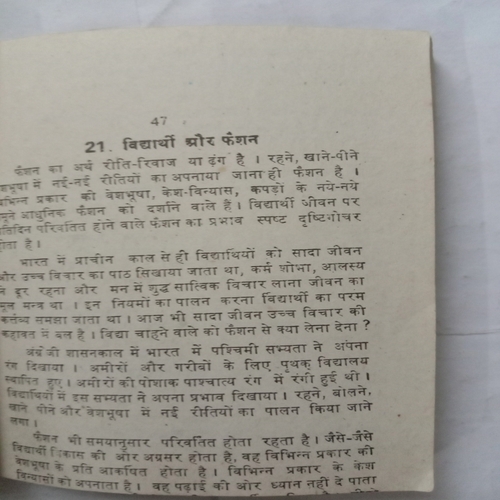 47
21. विद्यार्थी और फैशन
फैशन का अर्थ रीति-रिवाज या ढ़ंग है । रहने, खाने-पीने
वेशभूषा में नई-नई रीतियों का अपनाया जाना ही फैशन है ।
विभिन्न प्रकार की वेशभूषा, केश-विन्यास, कपड़ों के नये-नये
नमूने आधुनिक फैशन को दर्शाने वाले हैं । विद्यार्थी जीवन पर
प्रतिदिन परिवर्तित होने वाले फैशन का प्रभाव स्पष्ट दृष्टिगोचर
होता है ।
भारत में प्राचीन काल से ही विद्याथियों को सादा जीवन
और उच्च विचार का पाठ सिखाया जाता था, कर्म शोभा, आलस्य
से दूर रहना और मन में शुद्ध सात्विक विचार लाना जीवन का
मूल मन्त्र था । इन नियमों का पालन करना विद्यार्थी का परम
कर्त्तव्य समझा जाता था । आज भी सादा जीवन उच्च विचार की
कहावत में बल है । विद्या चाहने वाले को फैशन से क्या लेना देना ?
अंग्रेजी शासनकाल में भारत में पश्चिमी सभ्यता ने अपना
रंग दिखाया । अमीरों और गरीबों के लिए पृथक् विद्यालय
स्थापित हुए । अमीरों की पोशाक पाश्चात्य रंग में रंगी हुई थी ।
विद्यार्थियों में इस सभ्यता ने अपना प्रभाव दिखाया । रहने, बोलने,
खाने पीने और वेशभूषा में नई रीतियों का पालन किया जाने
लगा ।
फैशन भी समयानुसार परिवर्तित होता रहता है । जैसे-जैसे
विद्यार्थी विकास की ओर अग्रसर होता है, वह विभिन्न प्रकार की
वेशभूषा के प्रति आकर्षित होता है । विभिन्न प्रकार के केश
विन्यासों को अपनाता है । वह पढ़ाई की ओर ध्यान नहीं दे पाता